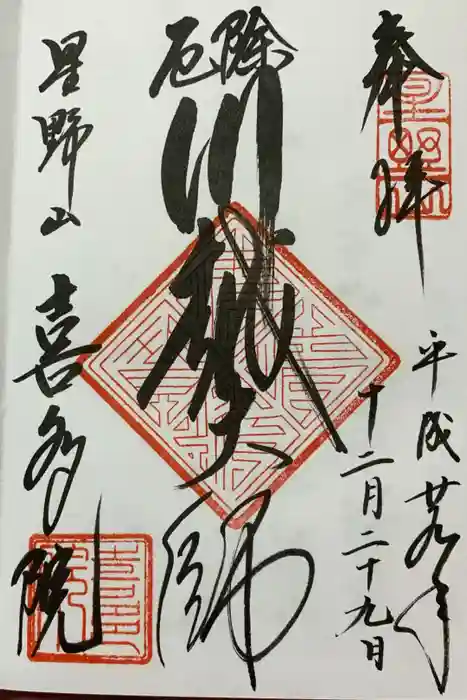 奉拝
平成廿九年
十二月二十九日
厄除
川越大師
星野山
喜多院